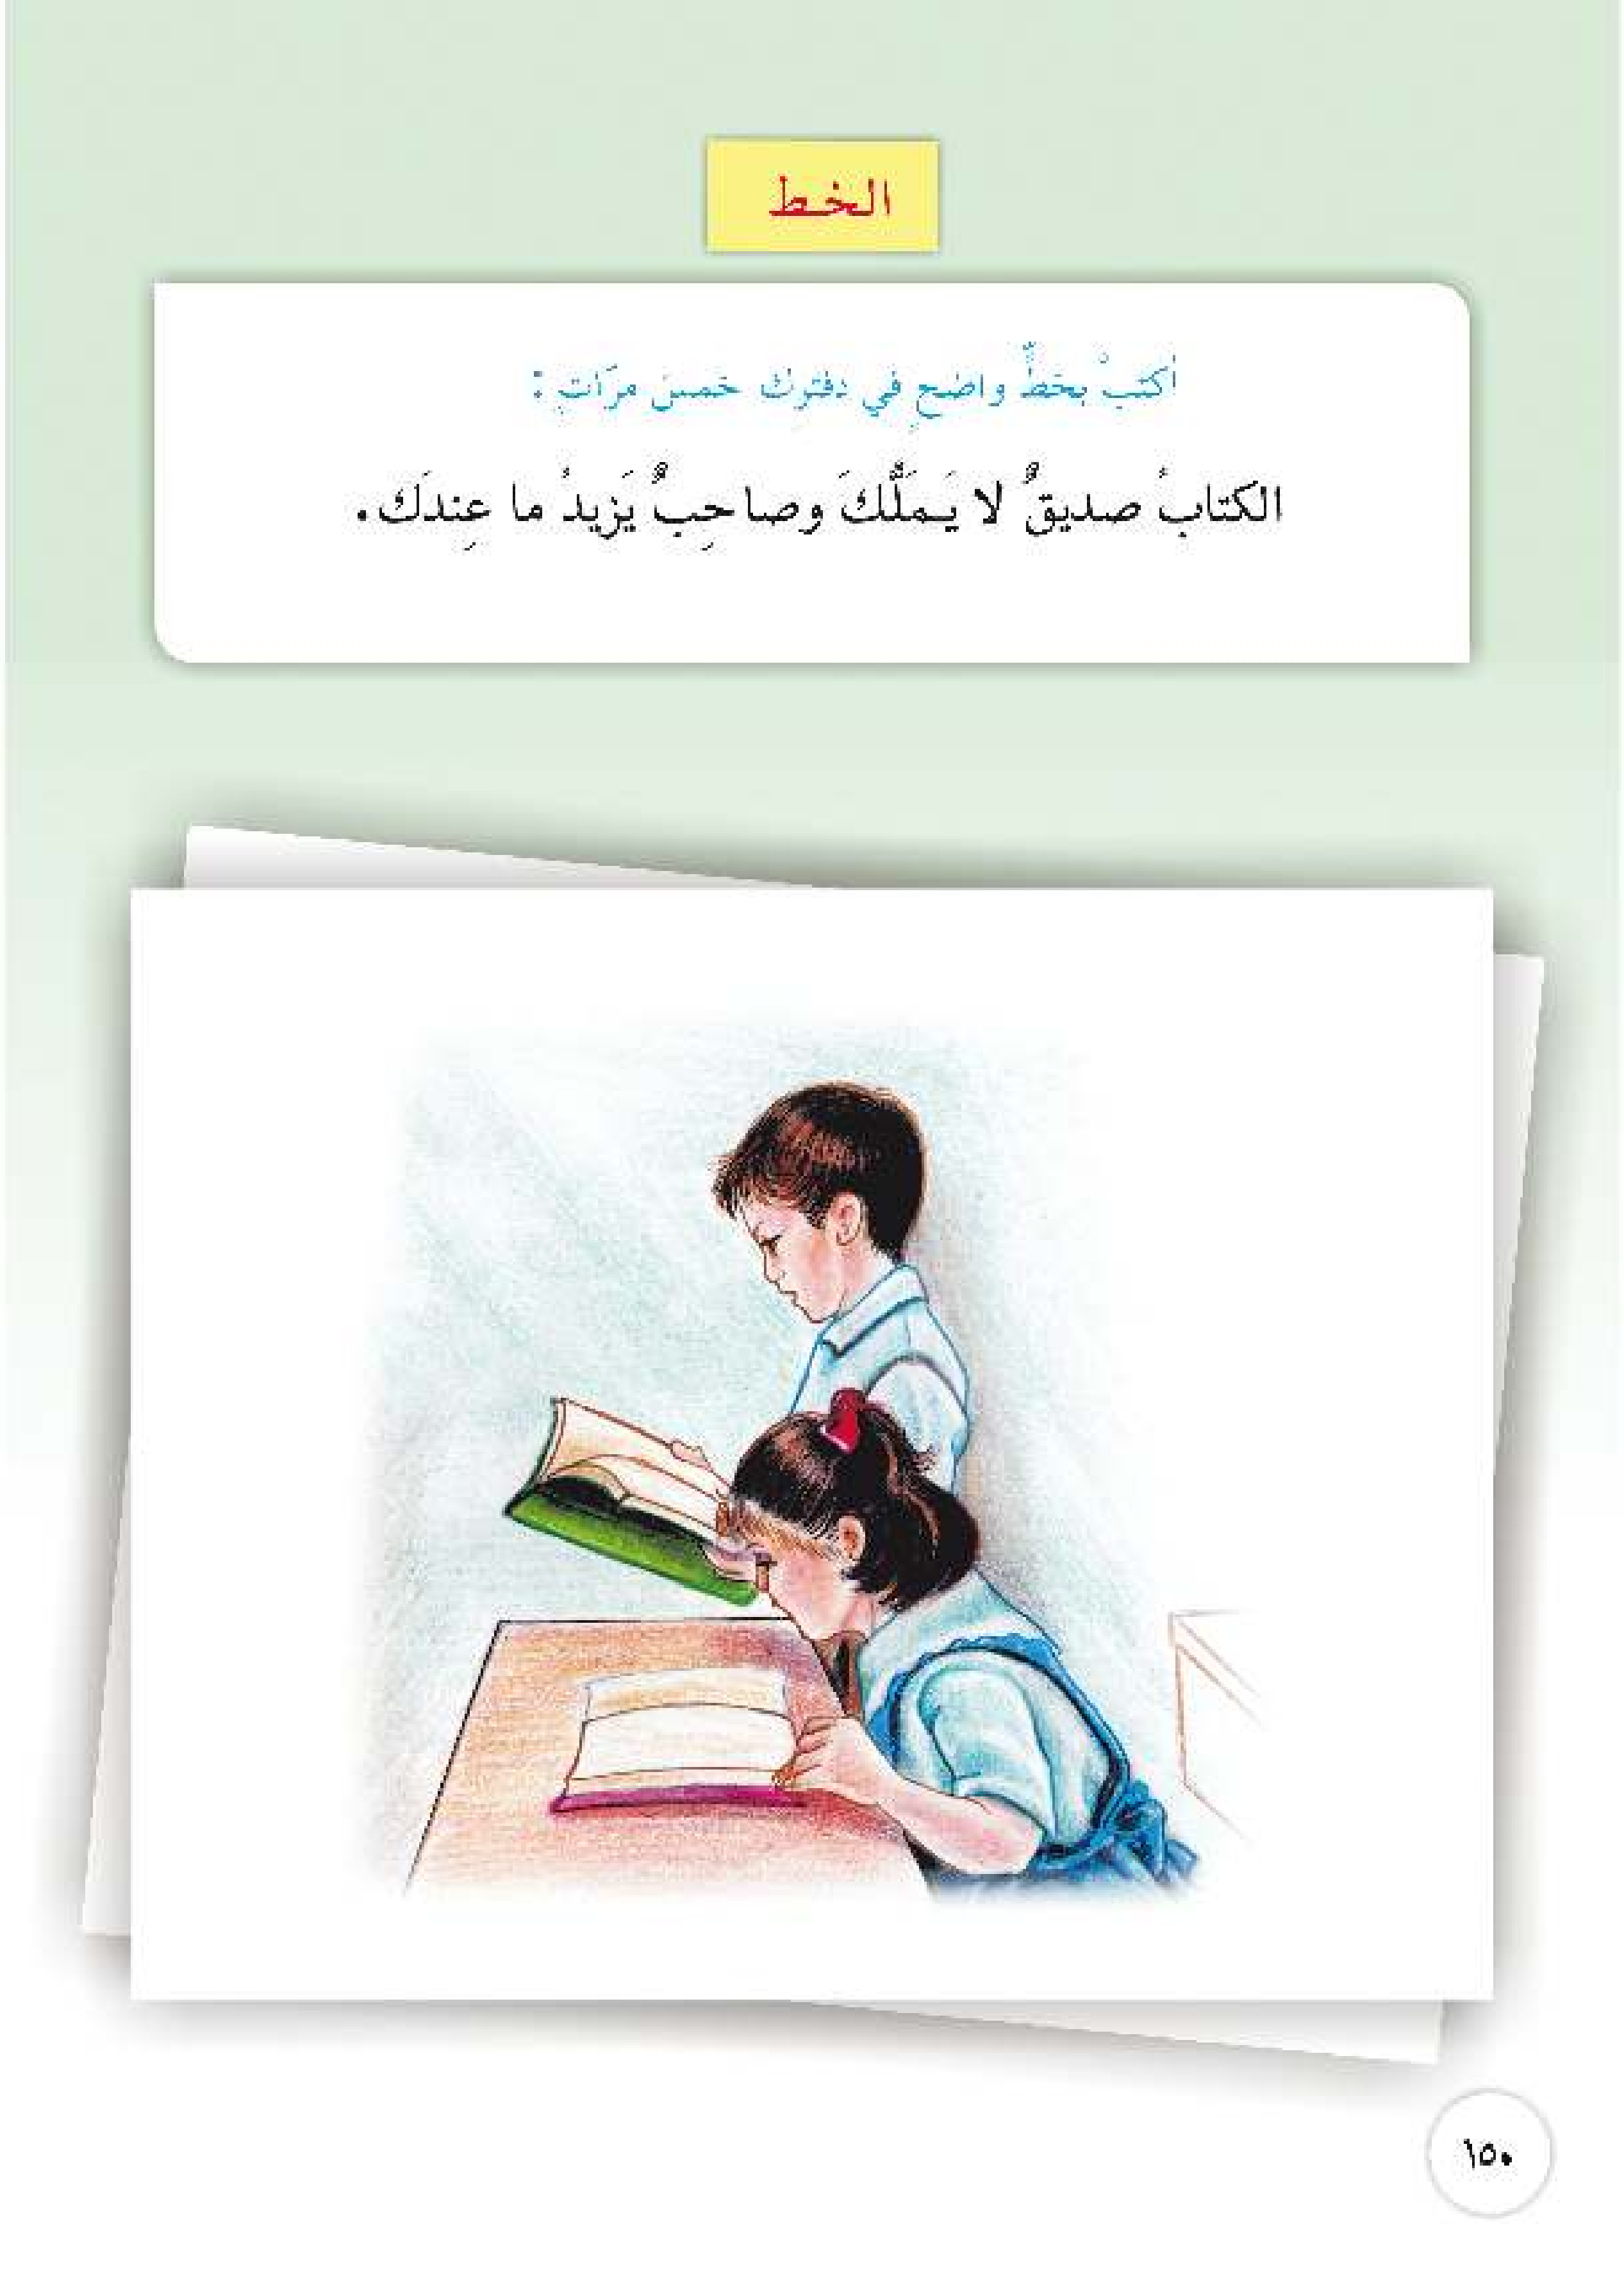 الخـط
اكتبْ بخطٍّ واضحٍ في دفترِك خمسَ مرّاتٍ :
الكتابُ صديقٌ لا يَـمَلُّكَ وصاحِبٌ يَزيدُ ما عِندَك.
١٥٠